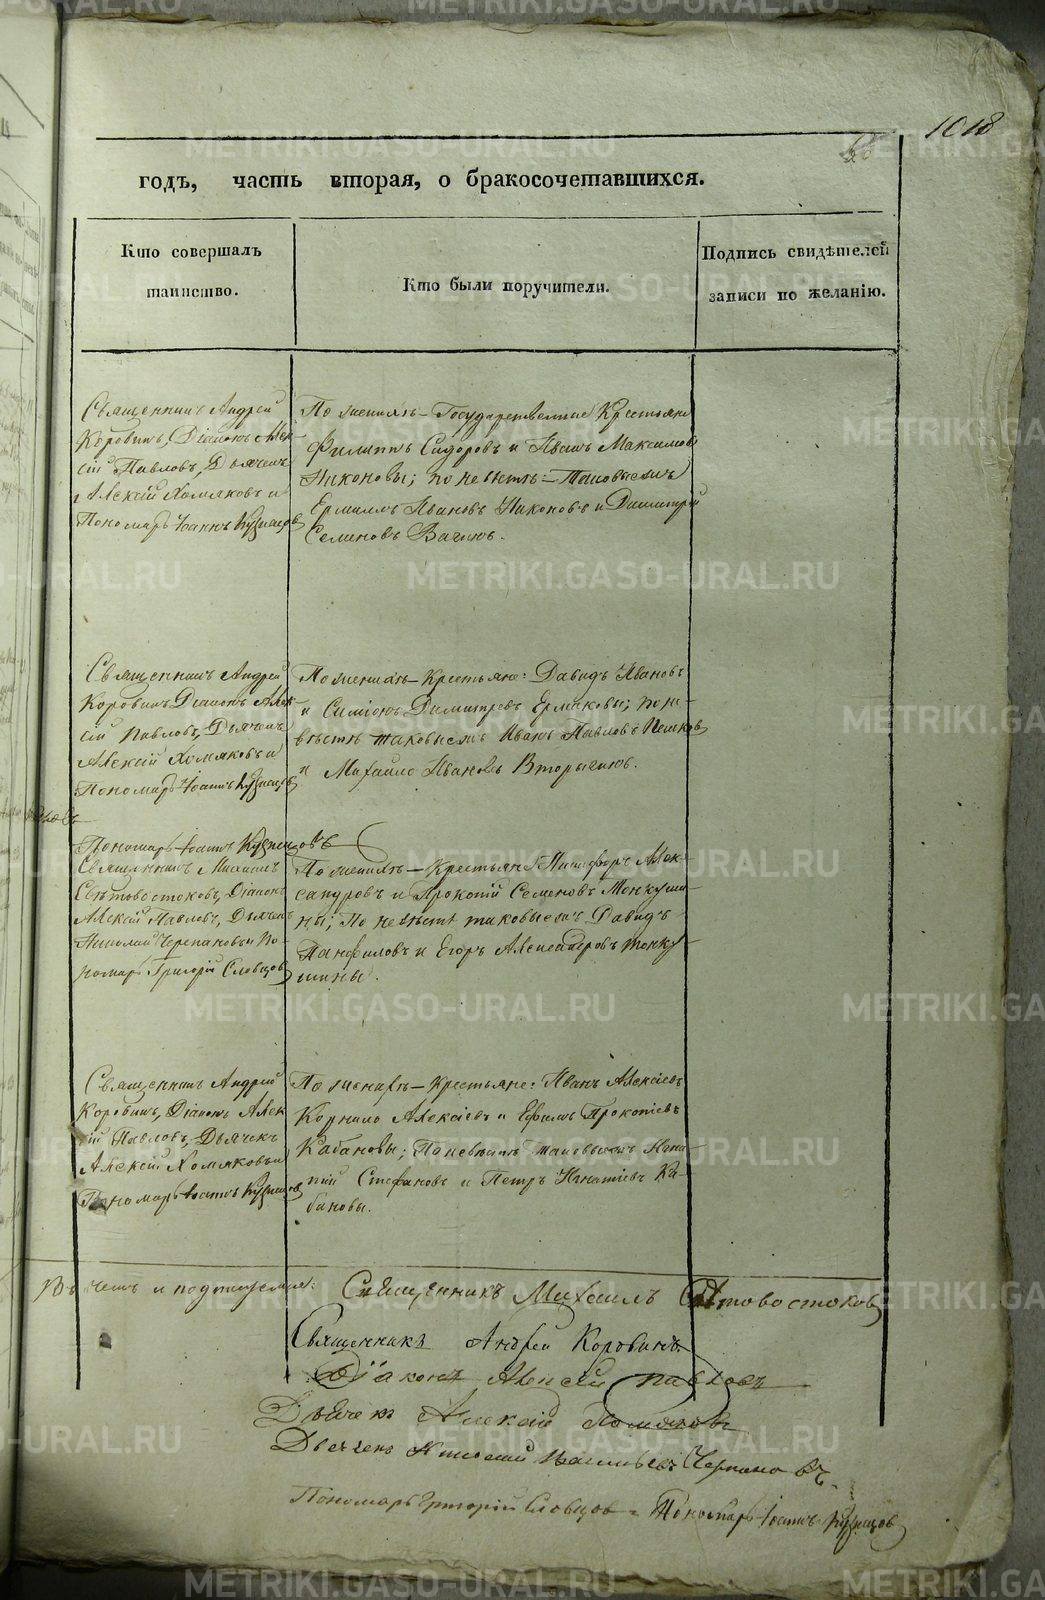 1018
годъ, часть вторая, о бракосочетавшихся.
Кто совершалъ
таинство.
Кто были поручители.
Подпись свидѣтелей
записи по желанію.
Священникъ Андрей
Коровинъ, Діаконъ Алек-
сій Павловъ, Дьячекъ
Алексій Хомяковъ и
Пономарь Іоаннъ Кузнецовъ
По женихѣ – Государственные Крестьяне
Филиппъ Сидоровъ и Иванъ Максимовъ
Никоновы; по невѣстѣ – таковыежъ
Ермилъ Ивановъ Никоновъ и Димитрій
Семеновъ
Священникъ Андрей
Коровинъ, Діаконъ Алек-
сій Павловъ, Дьячекъ
Алексій Хомяковъ и
Пономарь Іоаннъ Кузнецовъ
По женихѣ – Крестьяне: Давидъ Ивановъ
и Симіонъ Димитріевъ Ермаковы; по не-
вѣстѣ таковыежъ Иванъ Павловъ Пешковъ
и Михайло Ивановъ Вторыгинъ.
Пономарь Іоаннъ Кузнецовъ
Священникъ Михаилъ
Свѣтовостоковъ, Діаконъ
Алексій Павловъ, Дьячекъ
Николай Черепановъ и По-
номарь Григорій Словцовъ
По женихѣ – Крестьяне Никифоръ Алек-
сандровъ и Прокопій Семеновъ
ны; По невѣстѣ таковыежъ Давидъ
Панфиловъ и Егоръ Александровъ
шины.
Священникъ Андрей
Коровинъ, Діаконъ Алек-
сій Павловъ, Дьячекъ
Алексій Хомяковъ и
Пономарь Іоаннъ Кузнецовъ
По женихѣ – Крестьяне: Иванъ Алексѣевъ
Корнило Алексѣевъ и Ефимъ Прокопіевъ
Кабановы; По невѣстѣ таковыежъ
Стефановъ и Петръ Игнатіевъ Ка-
бановы.
Въ чемъ и подписуемся: Священникъ Михаилъ Свѣтовостоковъ
Священникъ Андрей Коровинъ
Діаконъ Алексій Павловъ
Дьячекъ Алексій Хомяковъ
Дьячекъ Николай Васильевъ Черепановъ
Пономарь Григорій Словцовъ. Пономарь Іоаннъ Кузнецовъ
METRIKI.GASO-URAL.RU